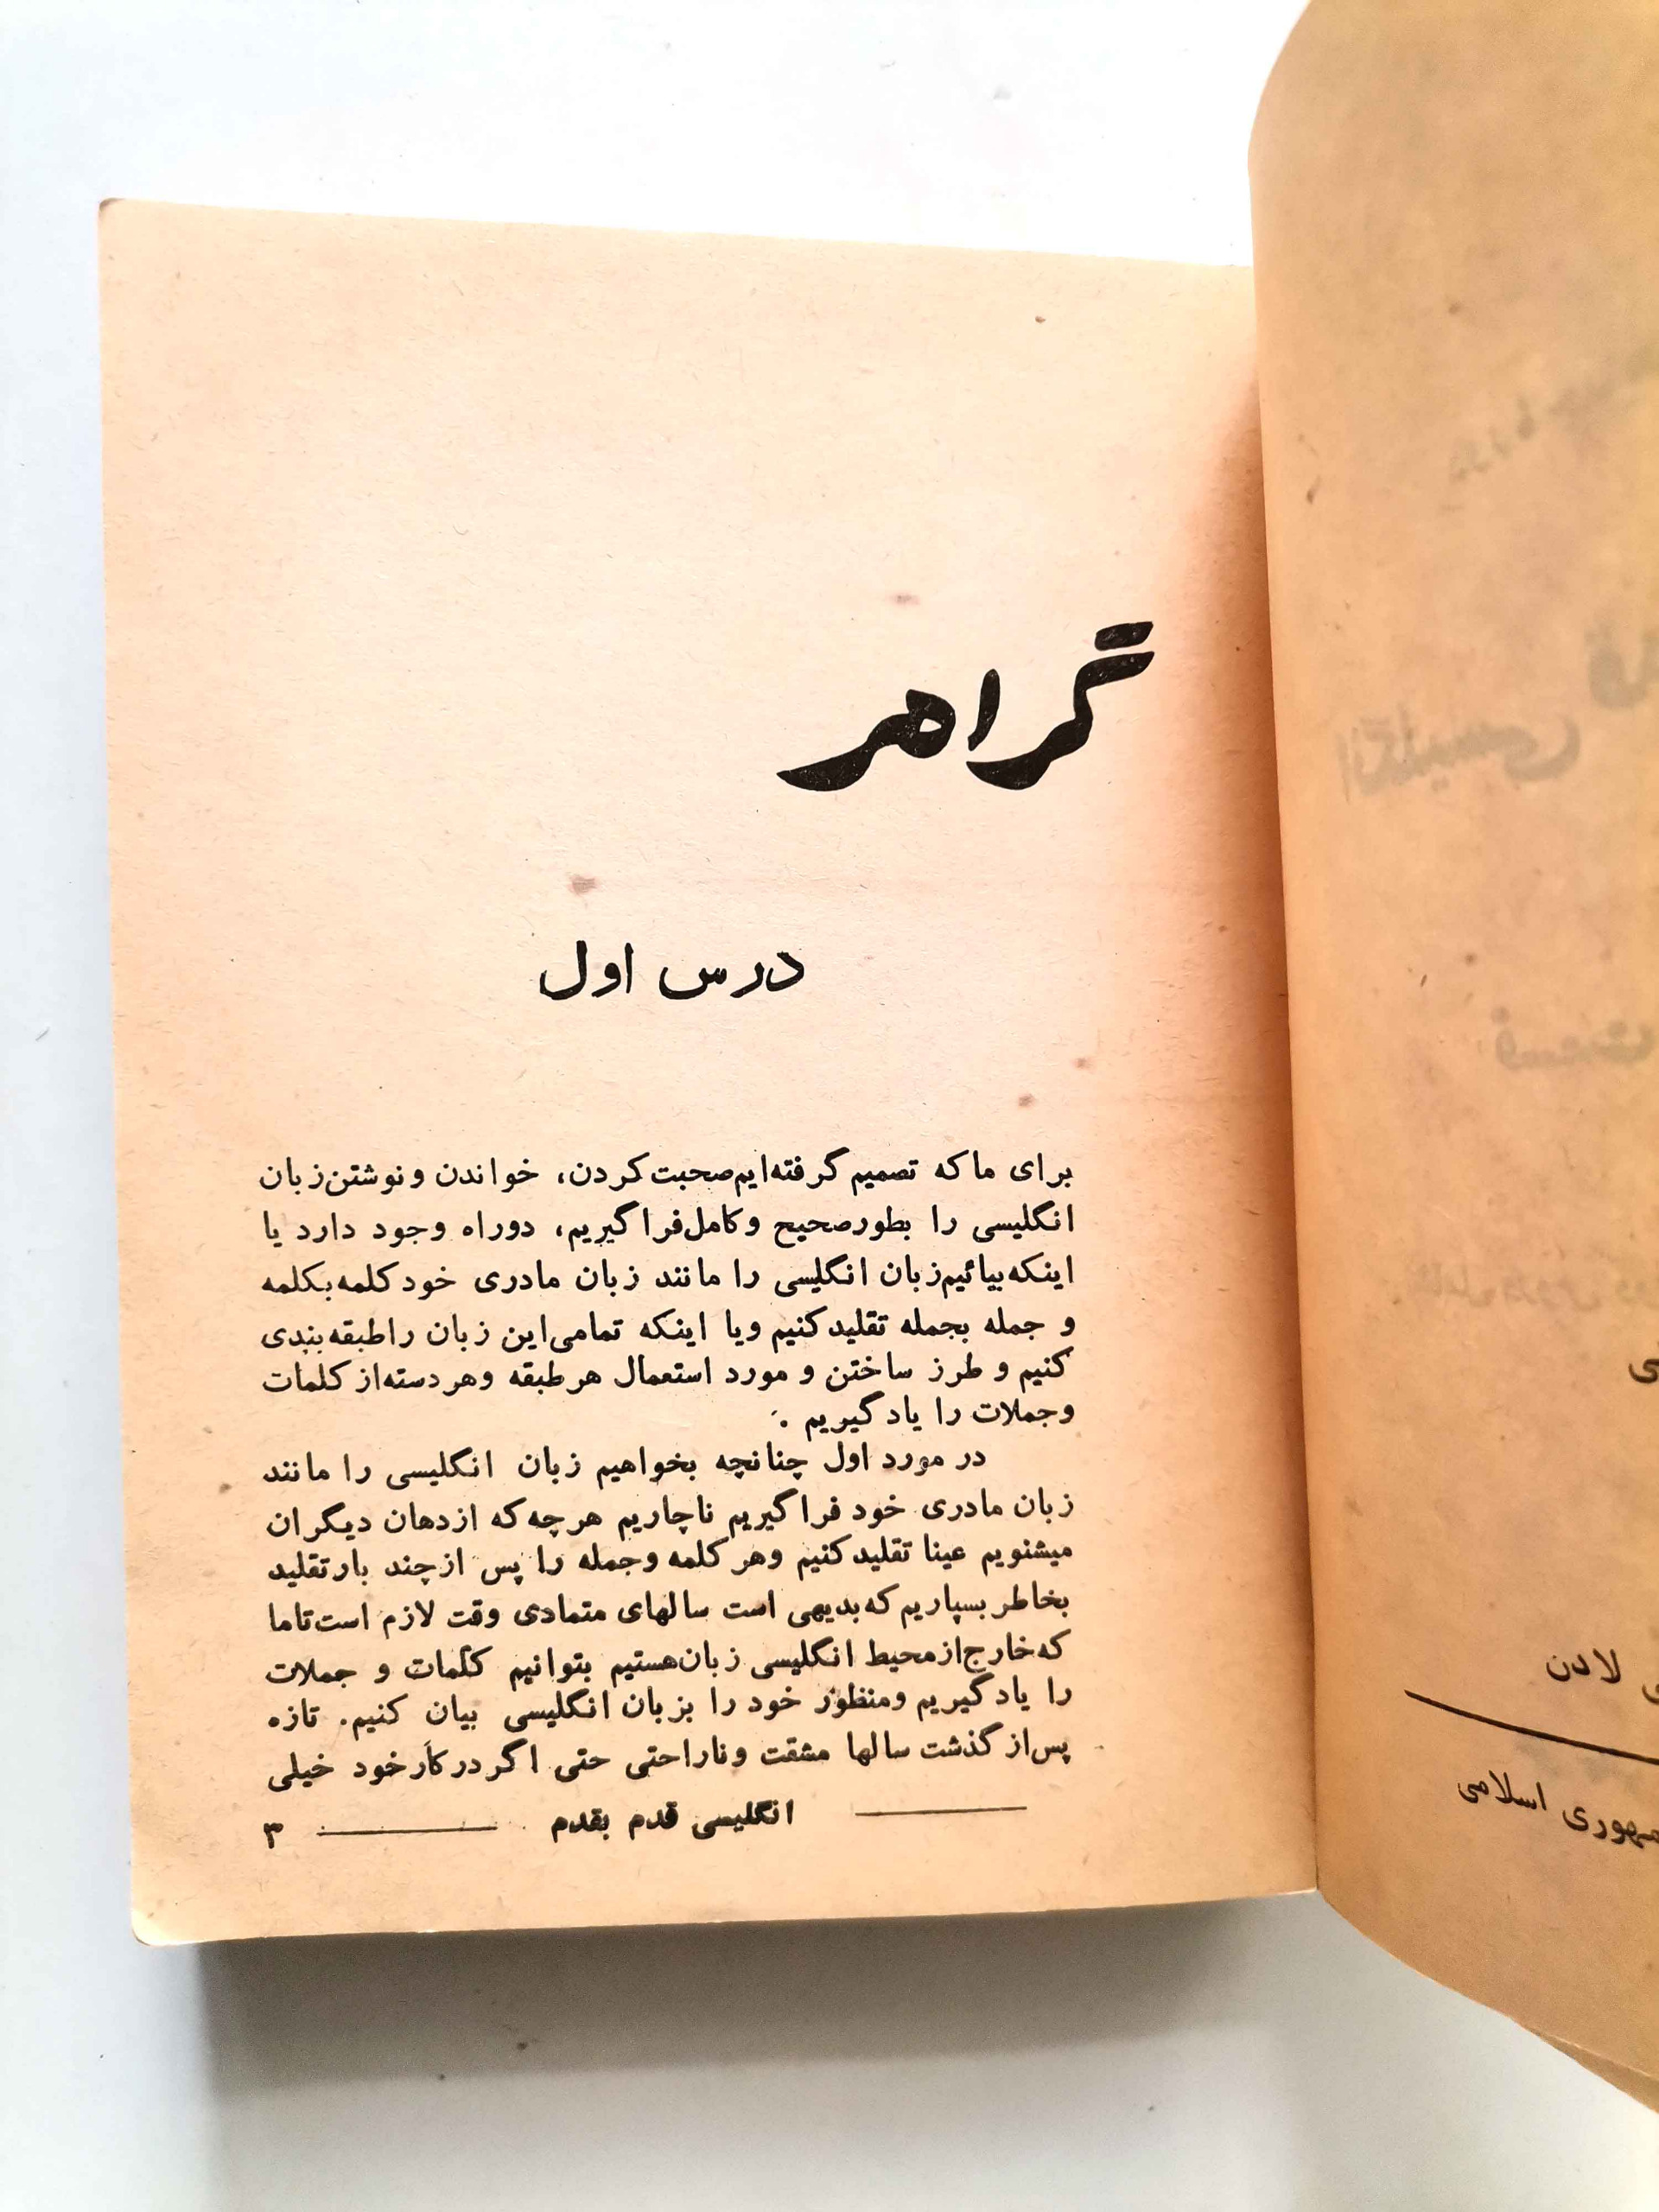 گرامر
درس اول
برای ما که تصمیم گرفته‌ایم صحبت کردن، خواندن و نوشتن زبان
انگلیسی را بطور صحیح و کامل فرا گیریم، دو راه وجود دارد یا
اینکه بیائیم زبان انگلیسی را مانند زبان مادری خود کلمه بکلمه
و جمله بجمله تقلید کنیم و یا اینکه تمامی این زبان را طبقه بندی
کنیم و طرز ساختن و مورد استعمال هر طبقه و هر دسته از کلمات
و جملات را یاد گیریم .
در مورد اول چنانچه بخواهیم زبان انگلیسی را مانند
زبان مادری خود فرا گیریم ناچاریم هر چه که از دهان دیگران
میشنویم عینا تقلید کنیم و هر کلمه و جمله را پس از چند بار تقلید
بخاطر بسپاریم که بدیهی است سالهای متمادی وقت لازم است تا ما
که خارج از محیط انگلیسی زبان هستیم بتوانیم کلمات و جملات
را یاد گیریم و منظور خود را بزبان انگلیسی بیان کنیم. تازه
پس از گذشت سالها مشقت و ناراحتی حتی اگر در کار خود خیلی
انگلیسی قدم بقدم ۳
انگلیسی
قسمت
لادن
جمهوری اسلامی